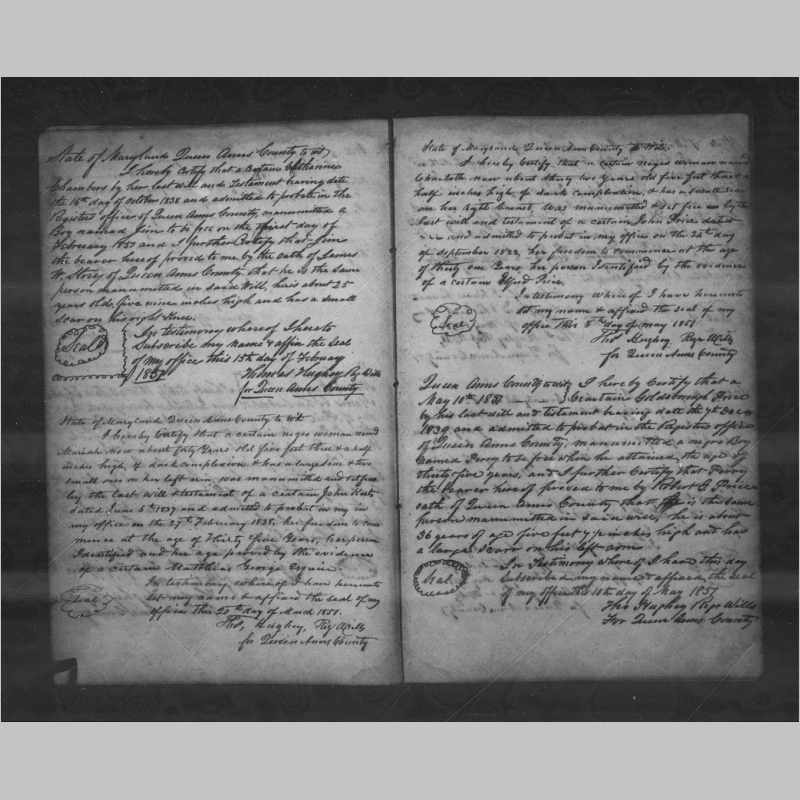 State of Maryland Queen Anns County to wit
I hereby Certify that a Certain
Chambers by her last will and Testament bearing date
the 16th day of October 1838 and admitted to probate in the
Registers office of Queen Anns County manumitted a
Boy named Jim to be free on the first day of
February 1857 and I further Certify that Jim
the bearer hereof proved to me by the oath of James
W. of Queen Anns County that he is the same
person manumitted in said Will, he is about 25
years old five nine inches high and has a small
scar on his right Knee.
Seal
In testimony whereof I hereto
Subscribe my name & affix the Seal
of my office this 15th day of February
1857
Thomas Hughey Reg Wills
for Queen Anns County
State of Maryland Queen Anns County to wit
I hereby Certify that a certain negro woman named
Mariah now about forty years old five feet three & a half
inches high, of dark complexion & has a large scar & two
small ones on her left arm, was manumitted and set free
by the last Will & testament of a certain John
dated June 5th 1837 and admitted to probat in my
my office on the 27th February 1838, her freedom to com
mence at the age of thirty five years, her person
Identified and her age proved by the evidence
of a certain Matthias George Esquire
In testimony whereof I have hereunto
set my name & affixed the seal of my
office this 25th day of March 1857.
Seal
Thos, Hughey, Reg Wills
for Queen Anns County
State of Maryland Queen Anns County to Wit:
I hereby Certify that a certain negro woman named
Charlotte now about thirty two years old five feet three & a
half inches high, of dark complexion, & has a
on her right was manumitted & set free by the
last will and testament of a certain John Price dated
and admitted to probat in my office on the 25th day
of September 1822, her freedom to commence at the age
of thirty one years her person Identified by the evidence
of a certain Price.
In testimony whereof I have hereunto
set my name & affixed the seal of my
office This 8th day of May 1857
Seal
Thos Hughey Reg Wills
for Queen Anns County
Queen Anns County to wit I hereby Certify that a
May 10th Certain Goldsborough Price
by his last will and testament bearing date the 7th Dec
1839 and admitted to probat in the Registers office
of Queen Anns County, manumitted a negro Boy
named Perry to be free when he attained the age of
thirty five years, and I further Certify that Perry
the bearer hereof proved to me by Robert Price
oath of Queen Anns County that he is the same
person manumitted in said will, he is about
36 years of age five feet 7 inches high and has
a large scar on his left arm
Seal
In Testimony whereof I have this day
Subscribed my name & affixed the seal
of my office this 10th day of May 1857
Thos Hughey Reg Wills
For Queen Anns County